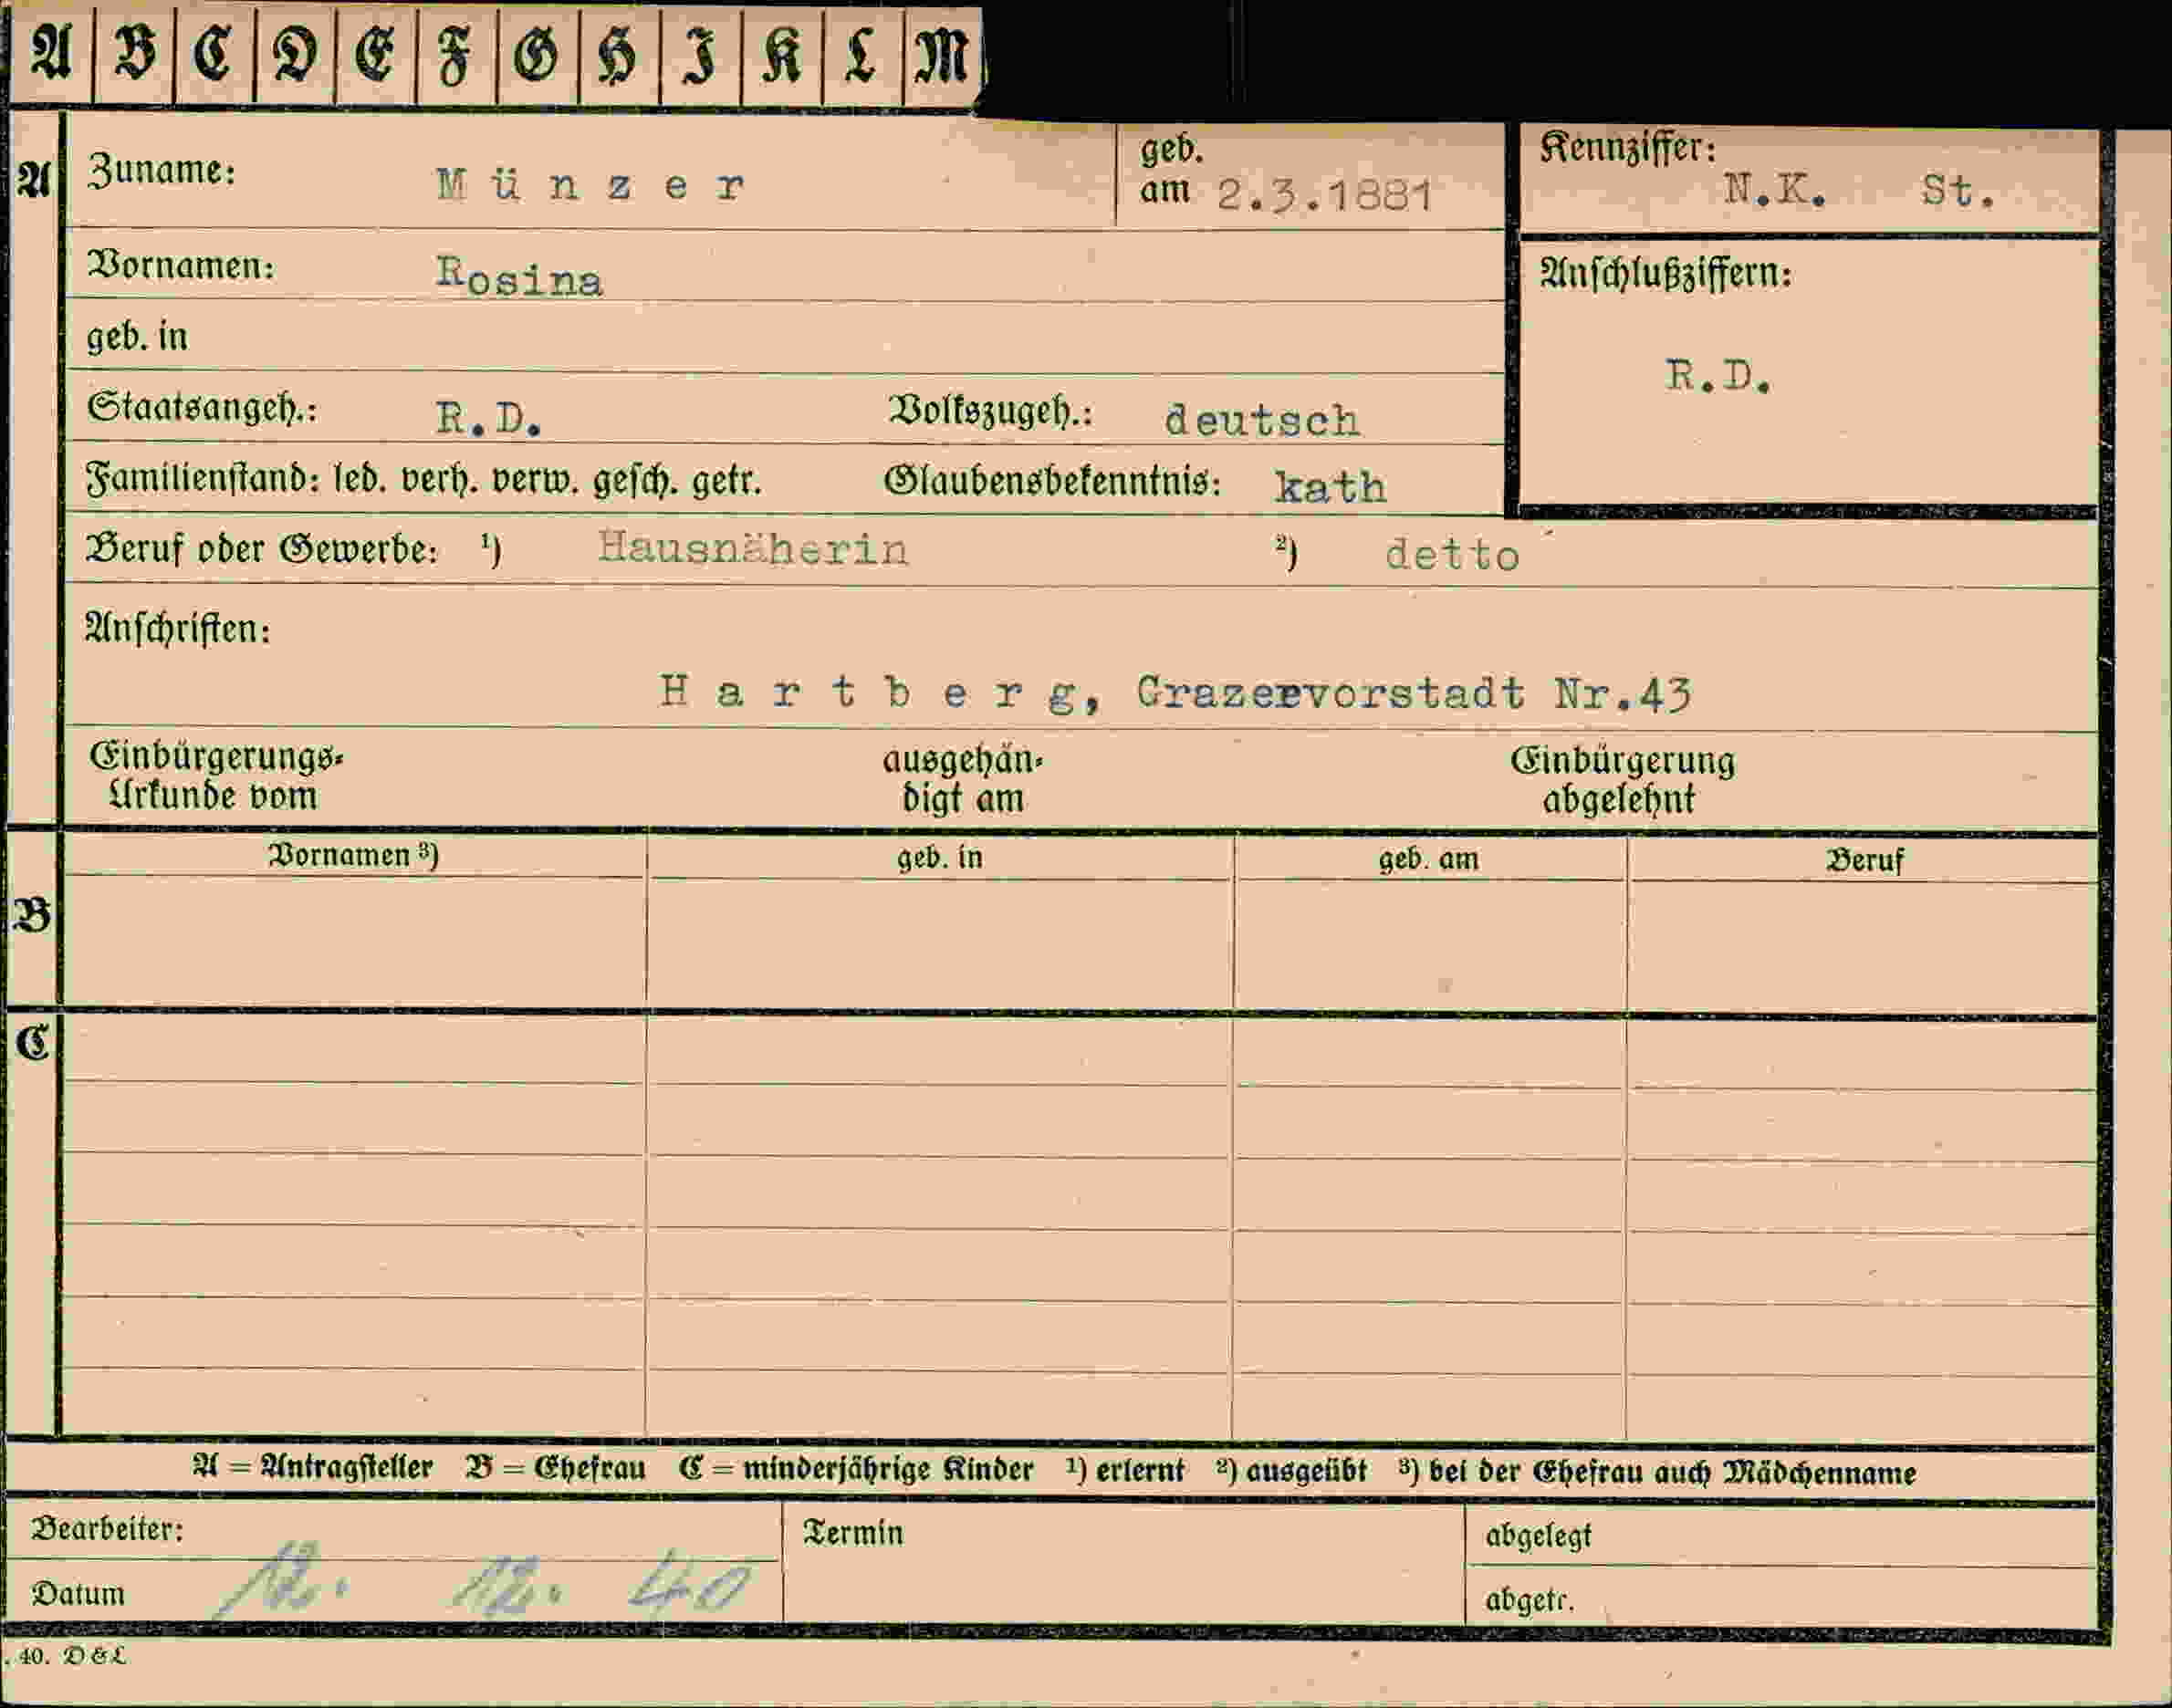 A B C D E F G H I K L M
A Zuname: Münzer geb. am 2.3.1881 Kennziffer: N.K. St.
Vornamen: Rosina Anschlußziffern:
geb. in
R.D.
Staatsangeh.: R.D. Volkszugeh.: deutsch
Familienstand: led. verh. verw. gesch. getr. Glaubensbekenntnis: kath
Beruf oder Gewerbe: ¹) Hausnäherin ²) detto
Anschriften:
Hartberg, Grazervorstadt Nr.43
Einbürgerungs- ausgehän- Einbürgerung
Urkunde vom digt am abgelehnt
Vornamen ³) geb. in geb. am Beruf
B
C
A = Antragsteller B = Ehefrau C = minderjährige Kinder ¹) erlernt ²) ausgeübt ³) bei der Ehefrau auch Mädchenname
Bearbeiter: Termin abgelegt
Datum 12. 12. 40 abgetr.
. 40. D & L